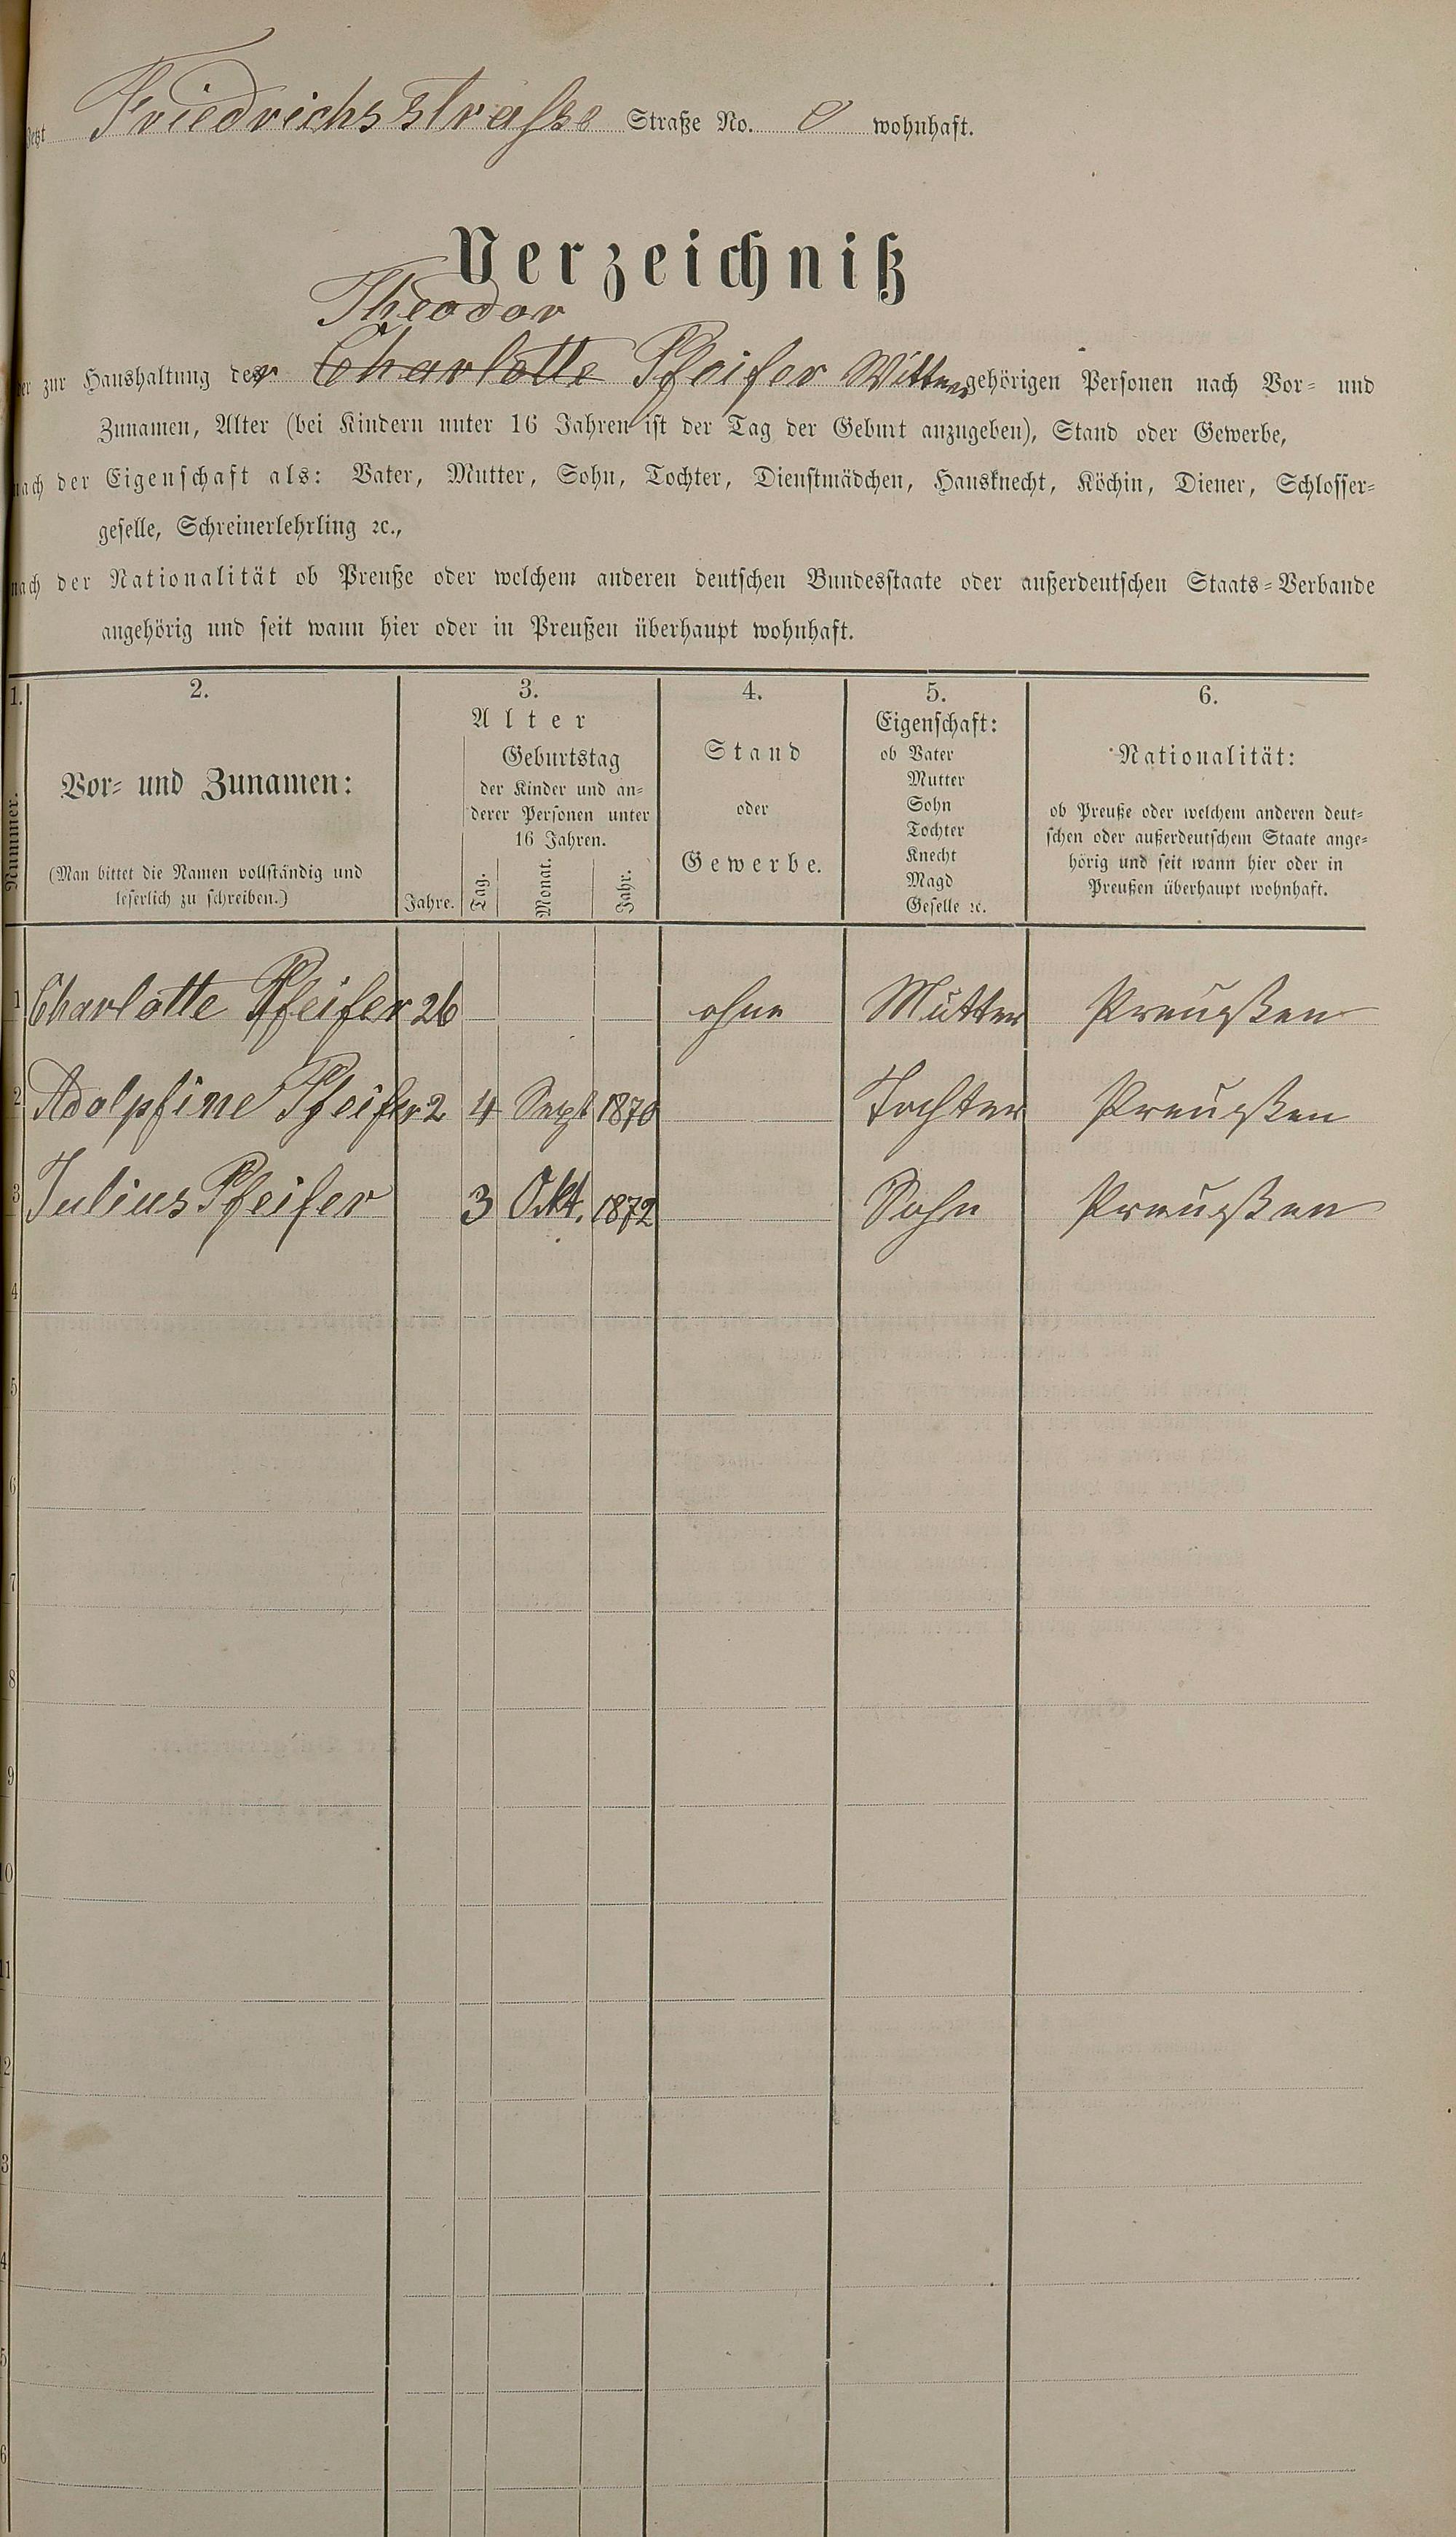 jetzt Friedrichsstraße Straße No. 0 wohnhaft.
Verzeichniß
Theodor
der zur Haushaltung der Charlotte Pfeifer Wittwe gehörigen Personen nach Vor- und
Zunamen, Alter (bei Kindern unter 16 Jahren ist der Tag der Geburt anzugeben), Stand oder Gewerbe,
nach der Eigenschaft als: Vater, Mutter, Sohn, Tochter, Dienstmädchen, Hausknecht, Köchin, Diener, Schlosser-
geselle, Schreinerlehrling ꝛc.,
nach der Nationalität ob Preuße oder welchem anderen deutschen Bundesstaate oder außerdeutschen Staats-Verbande
angehörig und seit wann hier oder in Preußen überhaupt wohnhaft.
1. 2. 3. 4. 5. 6.
Nummer.
Vor- und Zunamen:
(Man bittet die Namen vollständig und
leserlich zu schreiben.)
Alter
Geburtstag
der Kinder und an-
derer Personen unter
16 Jahren.
Jahre. Tag. Monat. Jahr.
Stand
oder
Gewerbe.
Eigenschaft:
ob Vater
Mutter
Sohn
Tochter
Knecht
Magd
Geselle ꝛc.
Nationalität:
ob Preuße oder welchem anderen deut-
schen oder außerdeutschem Staate ange-
hörig und seit wann hier oder in
Preußen überhaupt wohnhaft.
1 Charlotte Pfeifer 26 ohne Mutter Preußen
2 Adolphine Pfeifer 2 4 Sept 1870 Tochter Preußen
3 Julius Pfeifer 3 Okt. 1872 Sohn Preußen
4
5
6
7
8
9
10
11
2
3
4
5
6